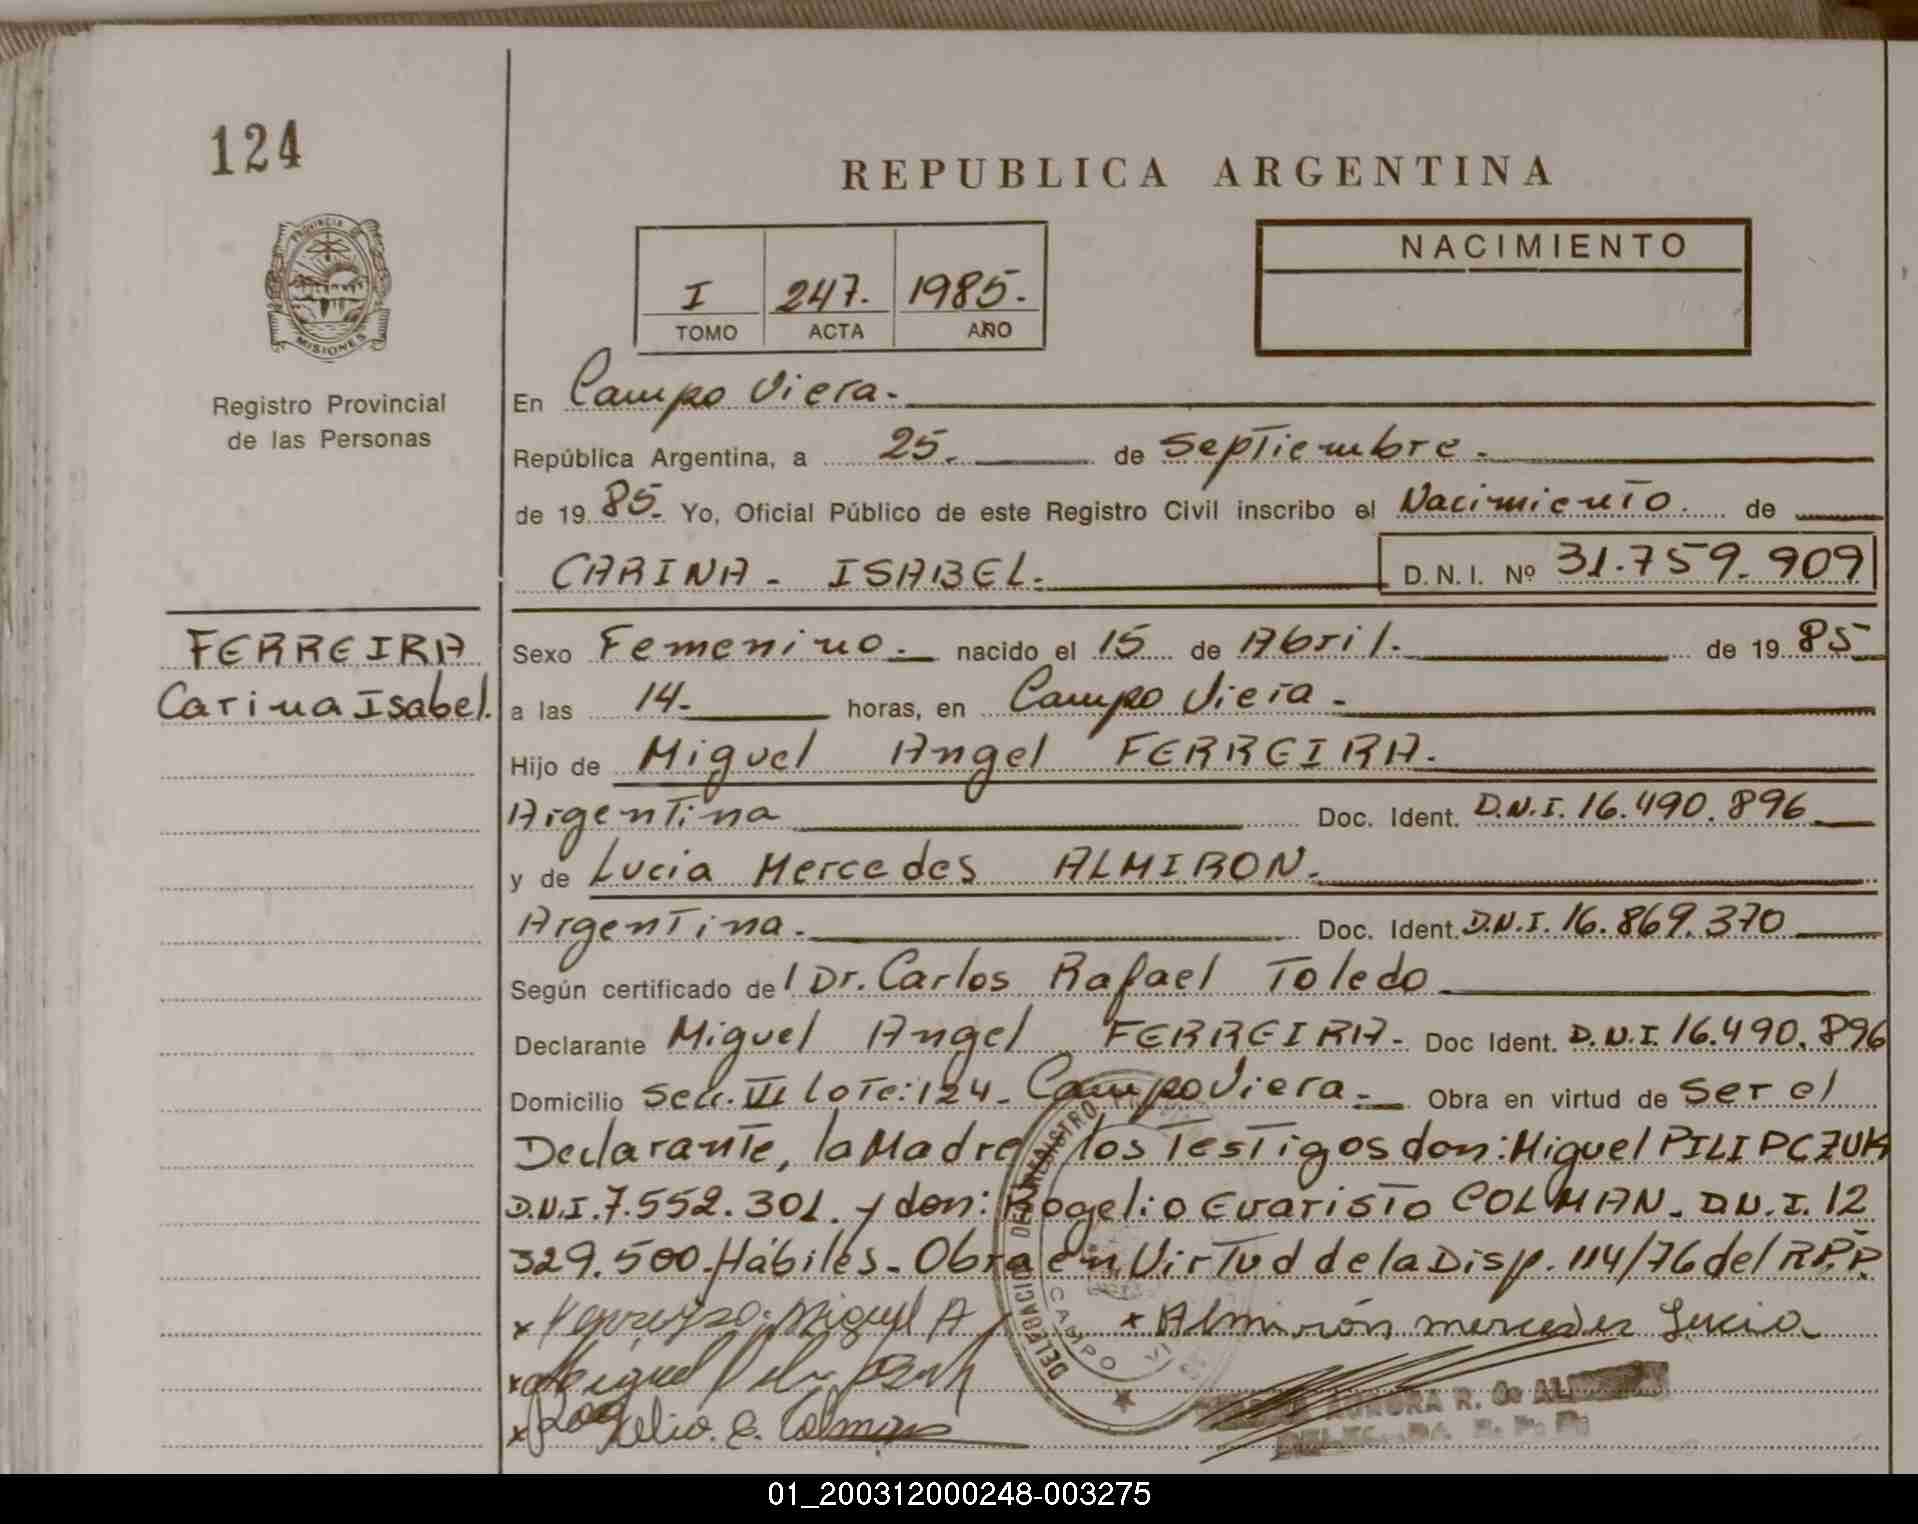 124
REPUBLICA ARGENTINA
PROVINCIA DE
MISIONES
Registro Provincial
de las Personas
I 247. 1985.
TOMO ACTA AÑO
NACIMIENTO
En Campo Viera.
República Argentina, a 25. de Septiembre.
de 19 85. Yo, Oficial Público de este Registro Civil inscribo el Nacimiento. de
CARINA - ISABEL. D.N.I. Nº 31.759.909
FERREIRA
Carina Isabel.
Sexo Femenino. nacido el 15 de Abril. de 19 85
a las 14. horas, en Campo Viera.
Hijo de Miguel Angel FERREIRA.
Argentina Doc. Ident. D.N.I. 16.490.896
y de Lucia Mercedes ALMIRON.
Argentina. Doc. Ident. D.N.I. 16.869.370
Según certificado de l Dr. Carlos Rafael Toledo
Declarante Miguel Angel FERREIRA. Doc Ident. D.N.I. 16.490.896
Domicilio Secc. VII Lote: 124. Campo Viera. Obra en virtud de Ser el
Declarante, la Madre los Testigos don: Miguel PILIPCZUK
D.N.I. 7.552.301. y don: Rogelio Evaristo COLMAN. D.N.I. 12
329.500. Hábiles. Obra en Virtud de la Disp. 114/76 del R.P.P.
x Miguel A x Almirón mercedes Lucia
x Miguel
x Rogelio. E. Colman
DELEGACION DEL REGISTRO
CAMPO VI
AURORA R. de
01_200312000248-003275